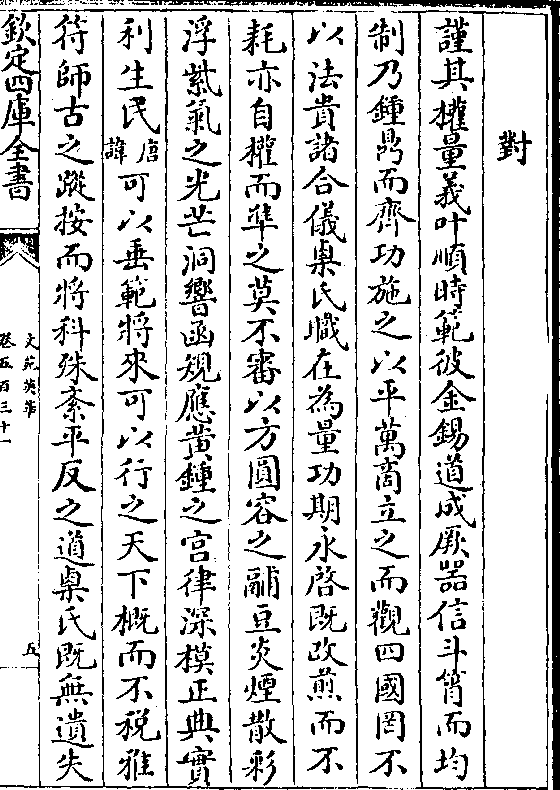 對
謹其權量義叶順時範彼金錫道成厥器信斗筲而均
制乃鍾鼎而齊功施之以平萬商立之而觀四國罔不
以法貴諸合儀㮚氏職在為量功期永啓既改煎而不
耗亦自權而準之莫不審以方圓容之鬴豆炎煙散彩
浮紫氣之光芒洞響函規應黃鍾之宮律深模正典實
利生民唐諱可以垂範將來可以行之天下概而不稅雅
符師古之蹤按而將科殊紊平反之道㮚氏既無遺失
欽定四庫全書
文苑英華
卷五百三十一
五